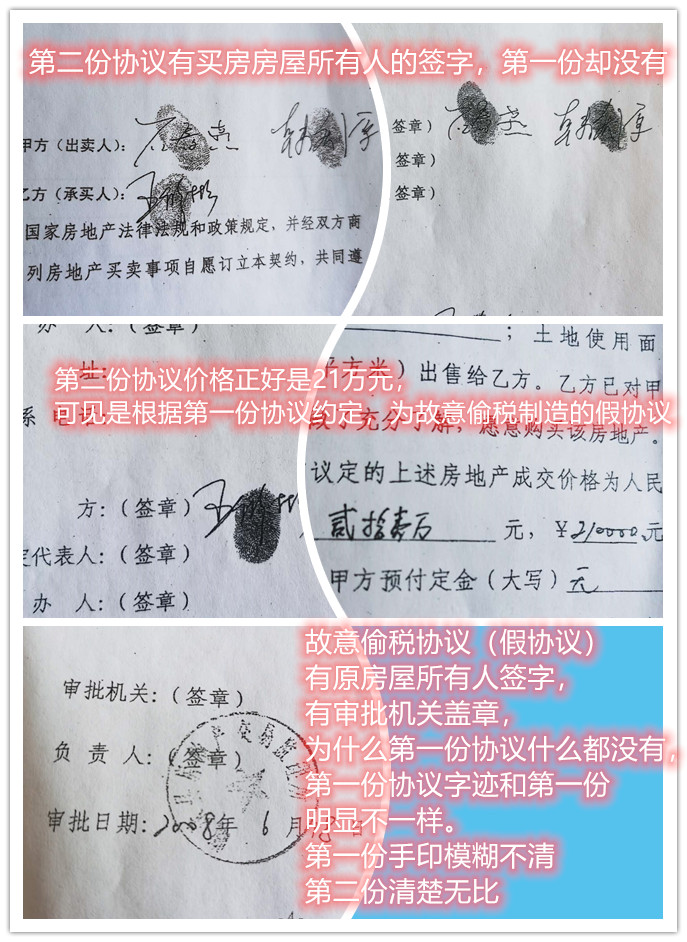 第二份协议有买房房屋所有人的签字，第一份却没有
甲方（出卖人）：
乙方（承买人）：
国家房地产法律法规和政策规定，并经双方商
列房地产买卖事项自愿订立本契约，共同遵
签章）
签章）
签章）
办 人：（签章）
址：
系 电话：
第二份协议价格正好是21万元，
可见是根据第一份协议约定，为故意偷税制造的假协议
方：（签章）
定代表人：（签章）
办 人：（签章）
；土地使用面
平方米）出售给乙方。乙方已对甲
做了充分了解，愿意购买该房地产。
议定的上述房地产成交价格为人民
贰拾壹万 元，¥210000元
甲方预付定金（大写）无
审批机关：（签章）
负 责 人：（签章）
审批日期：2008年 6 月 日
故意偷税协议（假协议）
有原房屋所有人签字，
有审批机关盖章，
为什么第一份协议什么都没有，
第一份协议字迹和第一份
明显不一样。
第一份手印模糊不清
第二份清楚无比